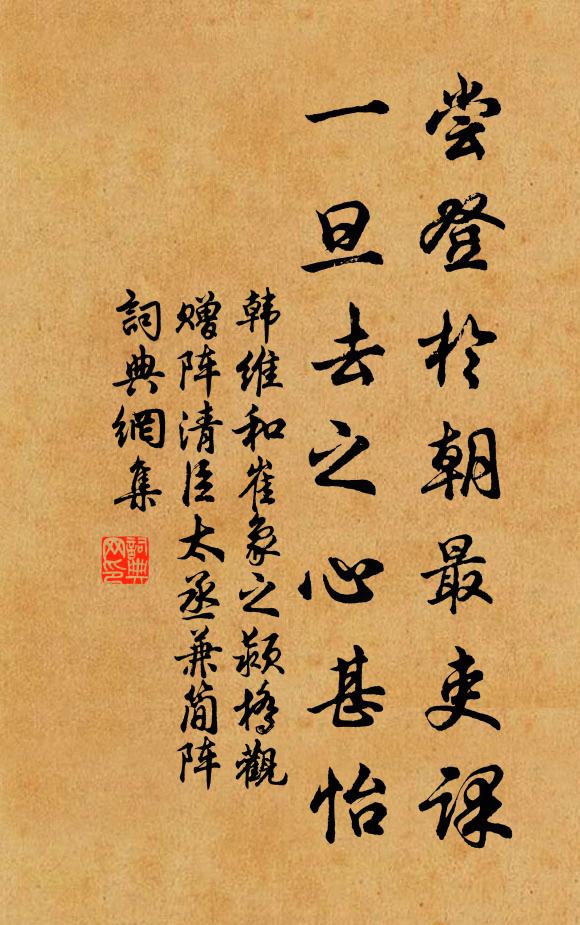 尝登於朝最吏课
一旦去之心甚怡
韩维和崔象之颍桥觀
赠阵清臣太丞兼简阵
詞典網集
詞典网印